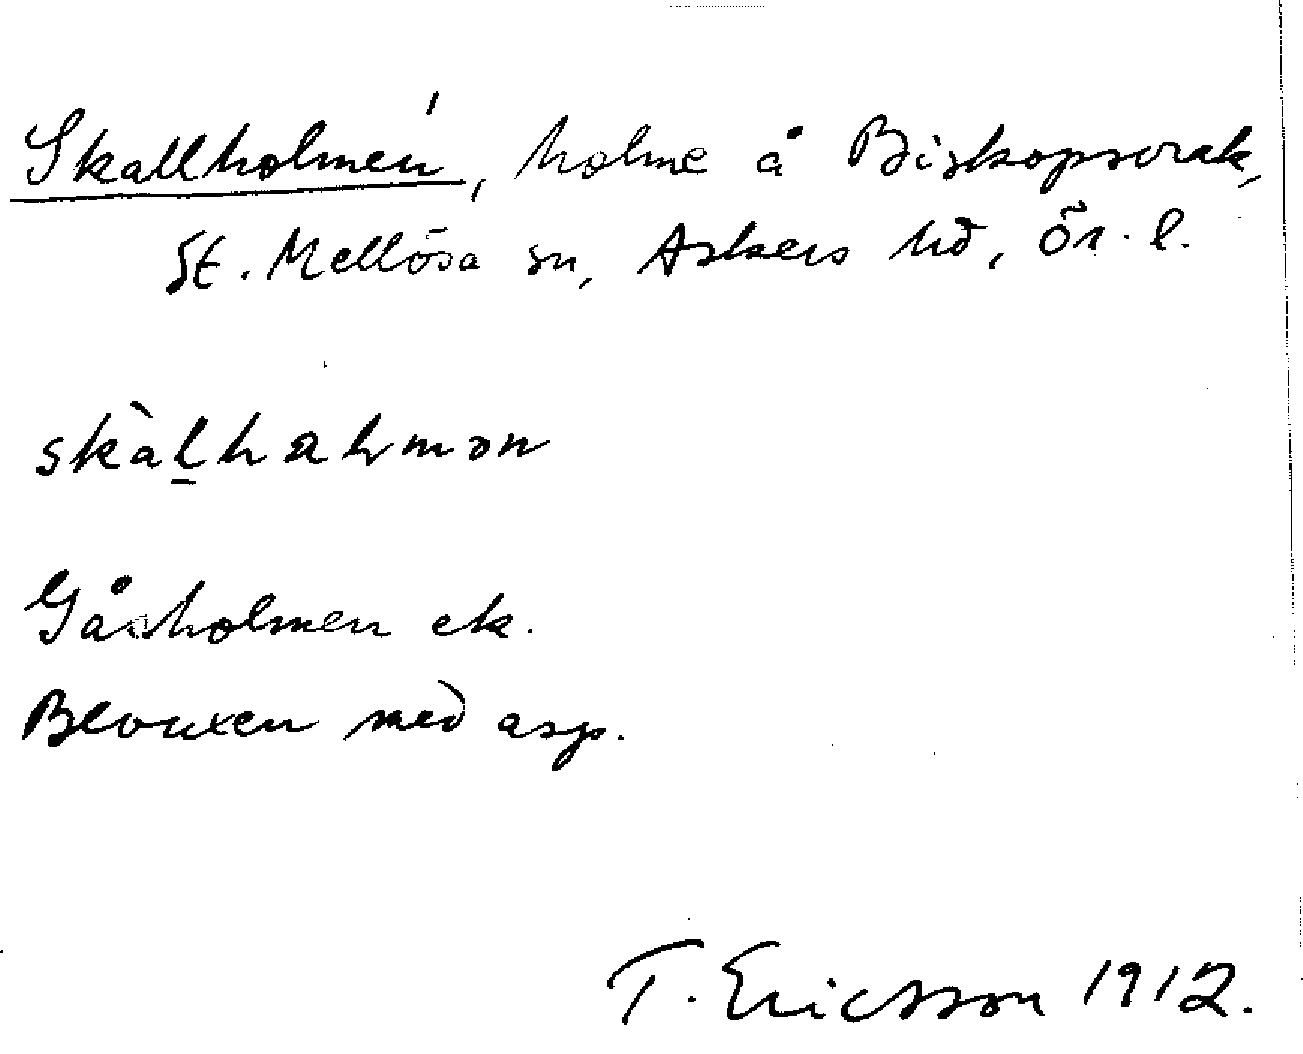 Skallholmen, holme å Biskopsvrak,
St. Mellösa sn, Askers hd, Ör. l.
skàl̲hal
Gåsholmen ek.
med asp.
T. Ericsson 1912.